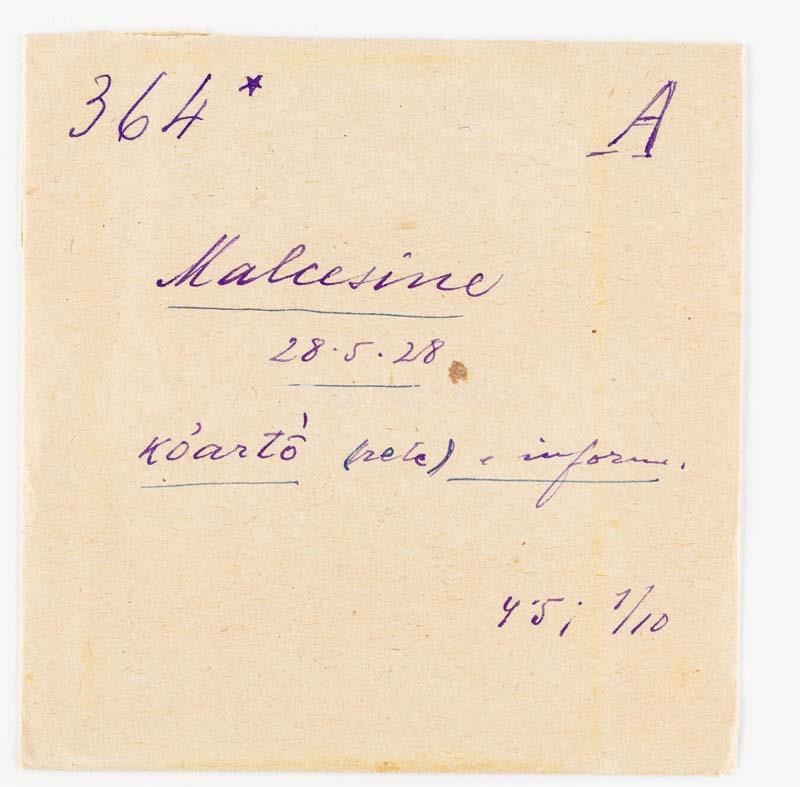 364* A
Malcesine
28.5.28
kóartȯ́ (rete) e inform.
4·5; 1/10